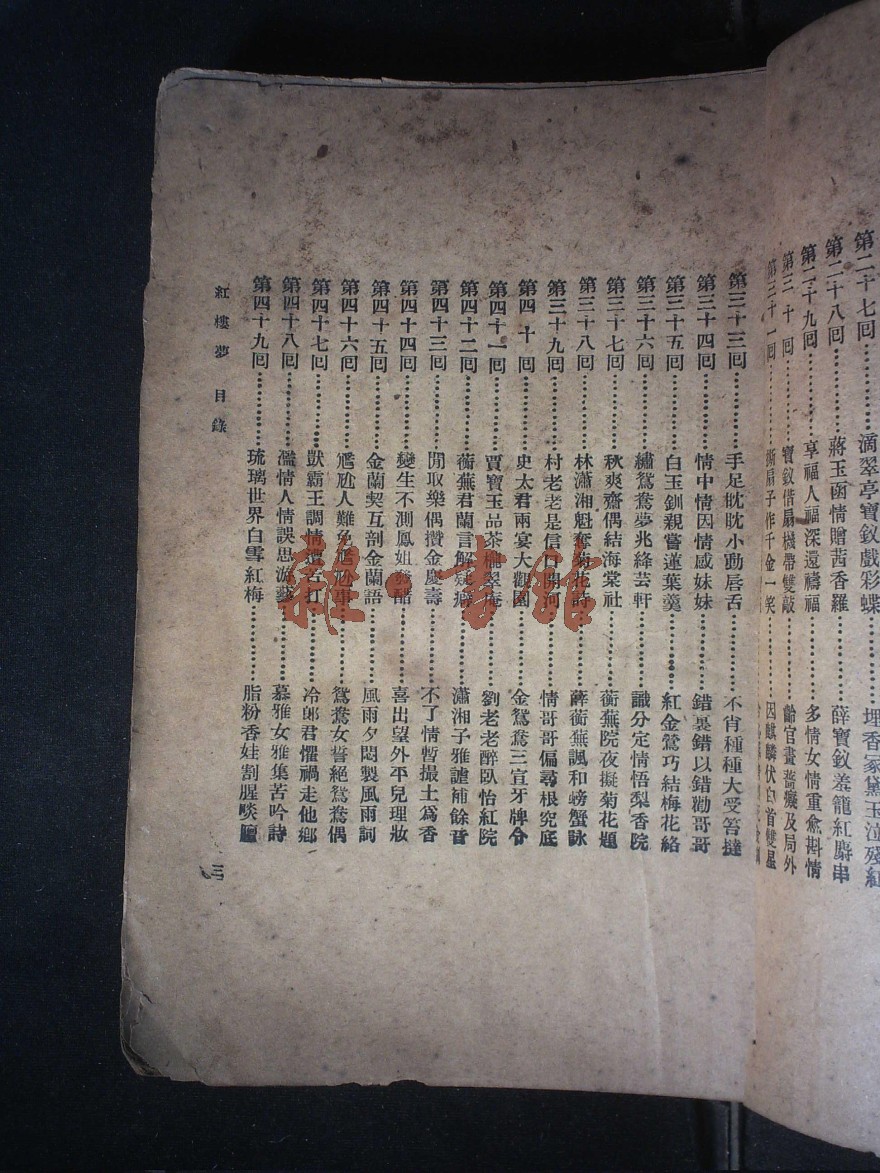 第二十七回…………滴翠亭寶釵戲彩蝶…………埋香冢黛玉泣殘紅
第二十八回…………蔣玉函情贈茜香羅…………薛寶釵羞籠紅麝串
第二十九回…………享福人福深還禱福…………多情女情重愈斟情
第三十回…………寶釵借扇機帶雙敲…………齡官畫薔癡及局外
第三十一回…………撕扇子作千金一笑…………因麒麟伏白首雙星
第三十三回…………手足眈眈小動唇舌…………不肖種種大受笞撻
第三十四回…………情中情因情感妹妹…………錯裏錯以錯勸哥哥
第三十五回…………白玉釧親嘗蓮葉羹…………紅金鶯巧結梅花絡
第三十六回…………繡鴛鴦夢兆絳芸軒…………識分定情悟梨香院
第三十七回…………秋爽齋偶結海棠社…………蘅蕪院夜擬菊花題
第三十八回…………林瀟湘魁奪菊花詩…………薛蘅蕪諷和螃蟹詠
第三十九回…………村老老是信口開河…………情哥哥偏尋根究底
第四十回…………史太君兩宴大觀園…………金鴛鴦三宣牙牌令
第四十一回…………賈寶玉品茶櫳翠庵…………劉老老醉臥怡紅院
第四十二回…………蘅蕪君蘭言解疑癖…………瀟湘子雅謔補餘音
第四十三回…………閒取樂偶攢金慶壽…………不了情暫撮土爲香
第四十四回…………變生不測鳳姐潑醋…………喜出望外平兒理妝
第四十五回…………金蘭契互剖金蘭語…………風雨夕悶製風雨詞
第四十六回…………尷尬人難免尷尬事…………鴛鴦女誓絕鴛鴦偶
第四十七回…………獃霸王調情遭苦打…………冷郎君懼禍走他鄉
第四十八回…………濫情人情誤思游藝…………慕雅女雅集苦吟詩
第四十九回…………琉璃世界白雪紅梅…………脂粉香娃割腥啖羶
紅樓夢 目錄 三
雜·書館